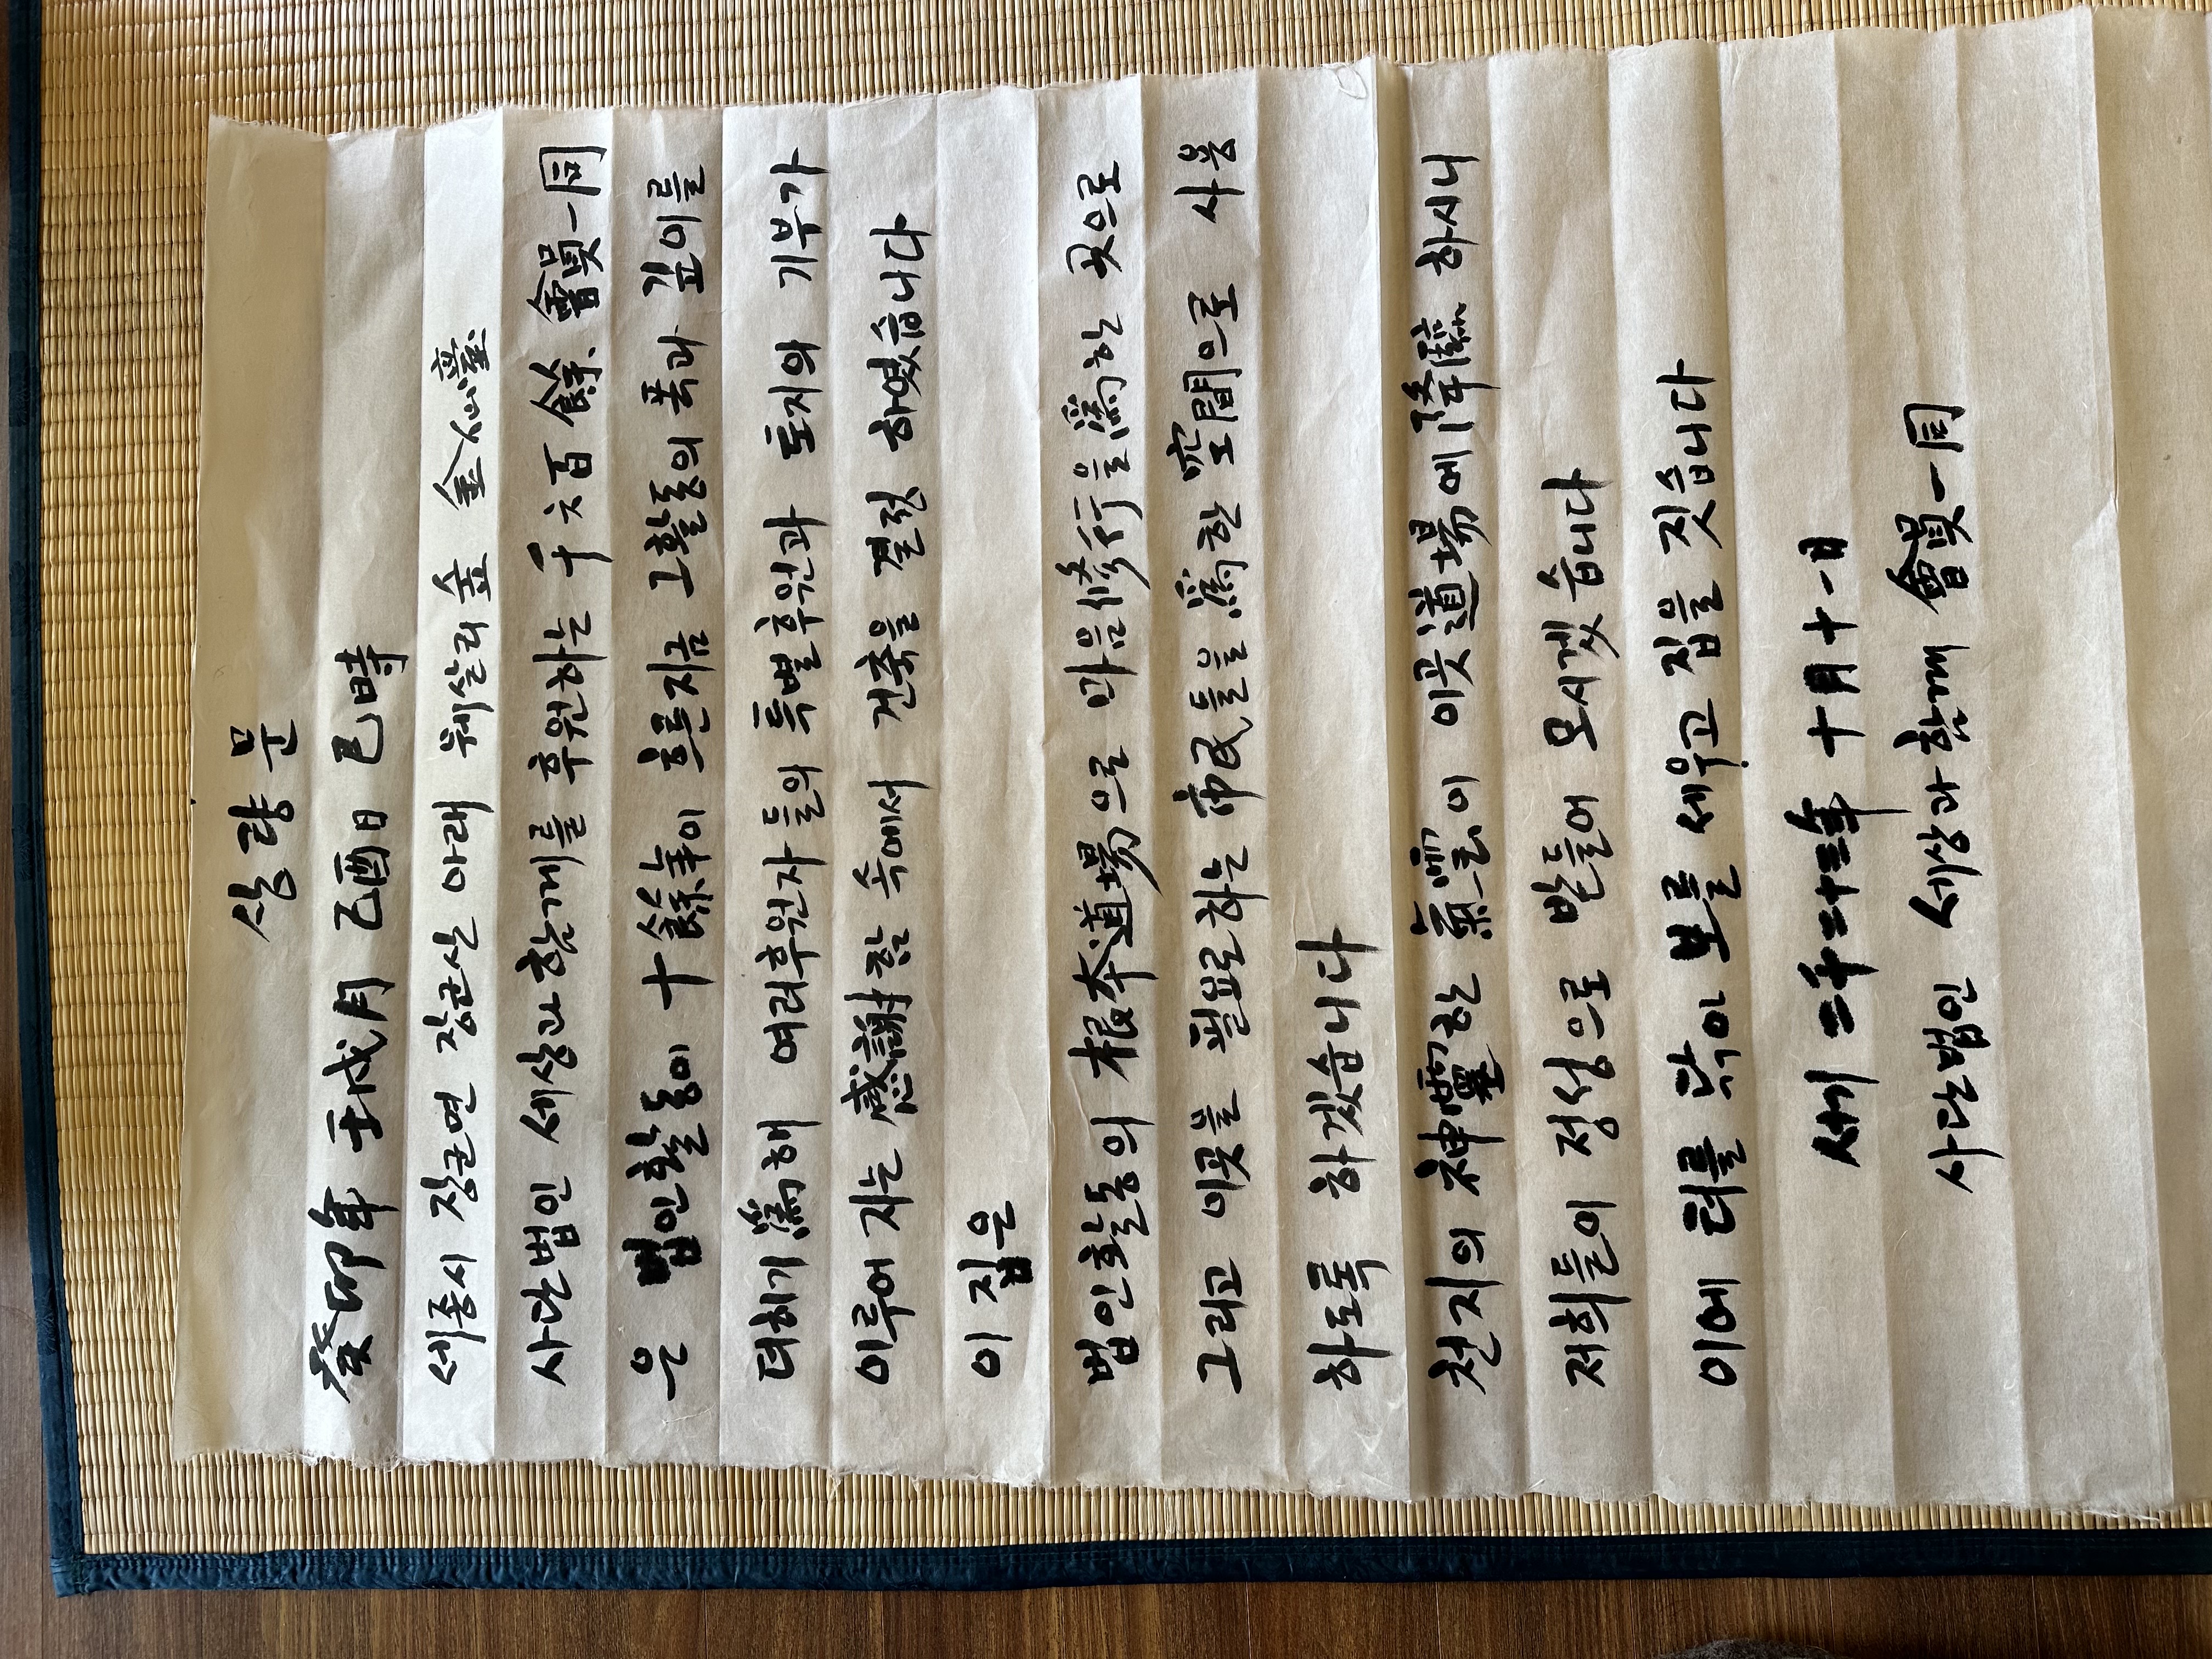 상량문
癸卯年 壬戌月 己酉日 巳時
세종시 장군면 장군산 아래 웨살리숲 金仙臺
사단법인 세상과함께를 후원하는 千六百餘 會員一同
은 법인활동이 十餘年이 흐른지금 그活동의 폭과 깊이를
더하기爲해 여러후원자들의 특별후원과 토지의 기부가
이루어 지는 感謝함 속에서 건축을 결정 하였습니다
이 집은
법인활동의 根本道場으로 마음修行을爲한 곳으로
그리고 이곳을 필요로하는 市民들을爲한 空間으로 사용
하도록 하겠습니다
천지의 神靈한 氣운이 이곳道場에降臨 하시니
저희들이 정성으로 받들어 모시겠습니다
이에 터를 닦아 보를 세우고 집을 짓습니다
세기 二千二十三年 十月十一日
사단법인 세상과함께 會員一同